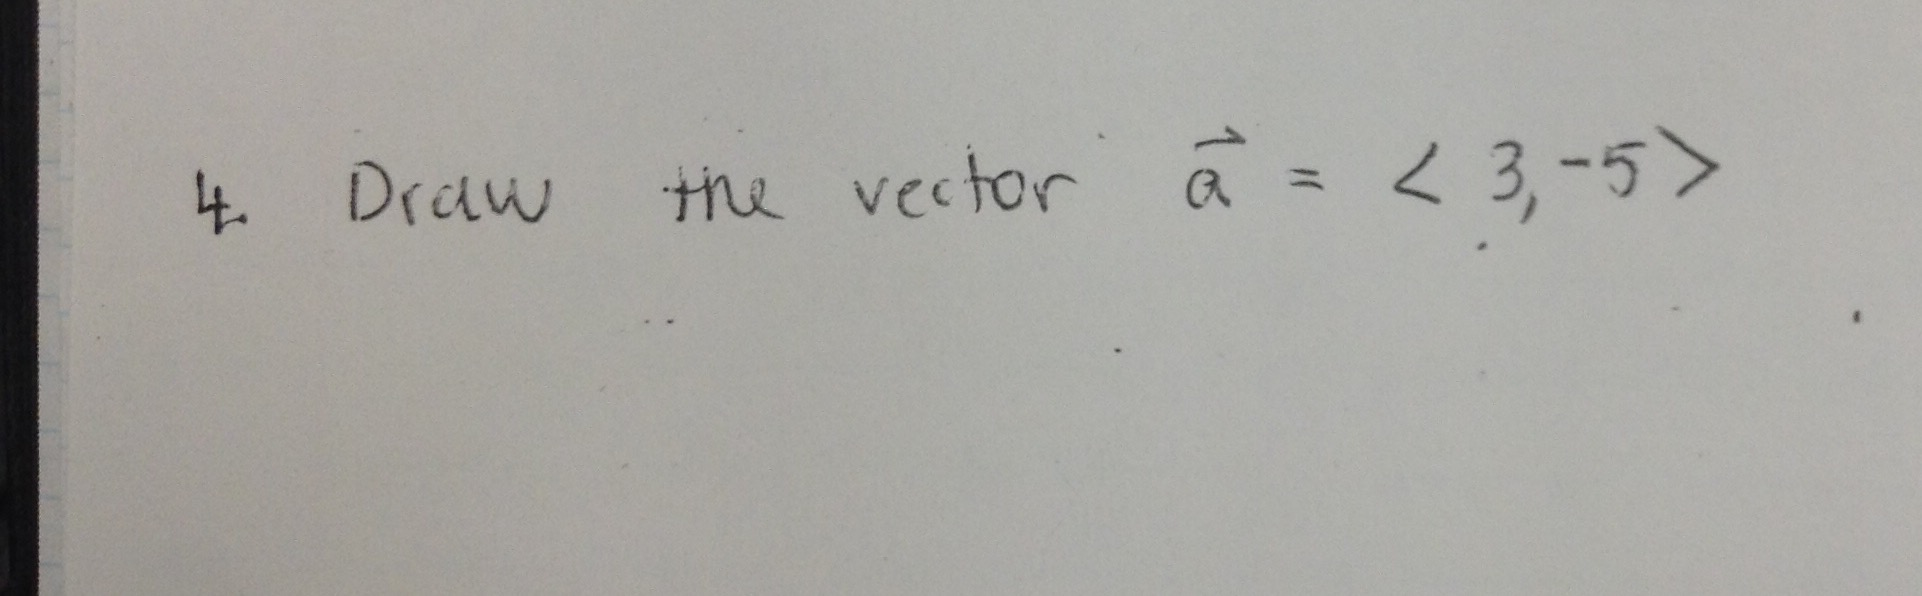 4. Draw the vector a⃗ = < 3, -5 >